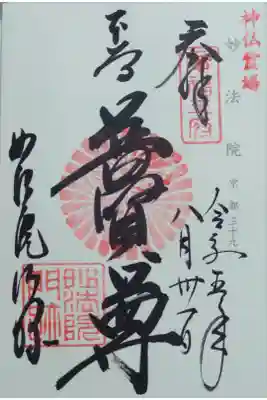 神仏霊場
妙法院 京都三十九
奉拝
令和五年
八月卅一日
普賢尊
妙法院門跡